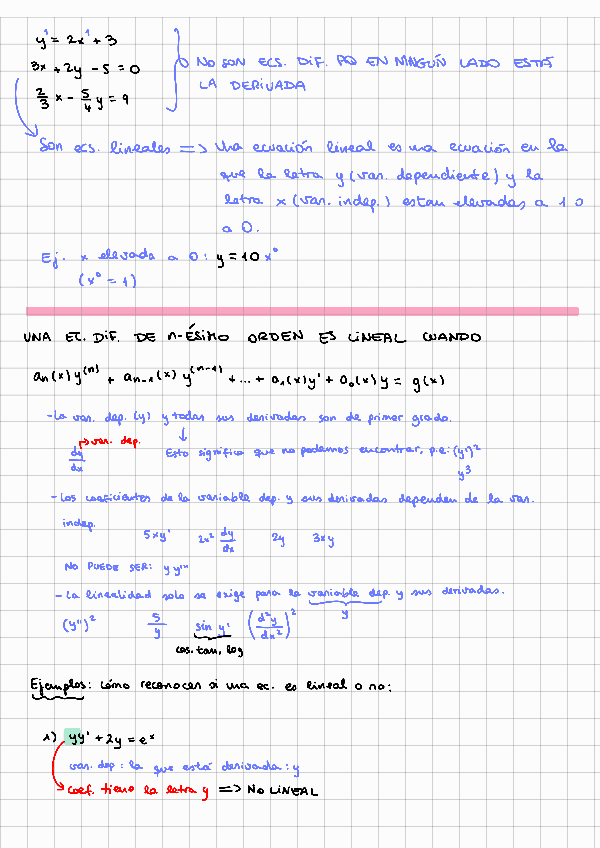 y¹ = 2x¹ + 3
3x + 2y - 5 = 0
2/3 x - 5/4 y = 9
NO SON ECS. DIF. PQ EN NINGÚN LADO ESTÁ
LA DERIVADA
Son ecs. lineales => Una ecuación lineal es una ecuación en la
que la letra y (var. dependiente) y la
letra x (var. indep.) estan elevadas a 1 o
a 0.
Ej. x elevada a 0: y = 10x⁰
(x⁰ = 1)
UNA EC. DIF. DE n-ÉSIMO ORDEN ES LINEAL CUANDO
aₙ(x) y⁽ⁿ⁾ + aₙ₋₁(x) y⁽ⁿ⁻¹⁾ + ... + a₁(x) y' + a₀(x) y = g(x)
- La var. dep. (y) y todas sus derivadas son de primer grado.
dy/dx → var. dep.
Esto significa que no podemos encontrar, p.e: (y')²
y³
- Los coeficientes de la variable dep. y sus derivadas dependen de la var.
indep.
5xy' 2x² dy/dx 2y 3xy
NO PUEDE SER: y y'''
- La linealidad solo se exige para la variable dep. y sus derivadas.
y
(y'')² 5/y sin y' (d²y/dx²)²
cos, tan, log
Ejemplos: cómo reconocer si una ec. es lineal o no:
1) yy' + 2y = eˣ
var. dep: la que está derivada: y
coef. tiene la letra y => NO LINEAL